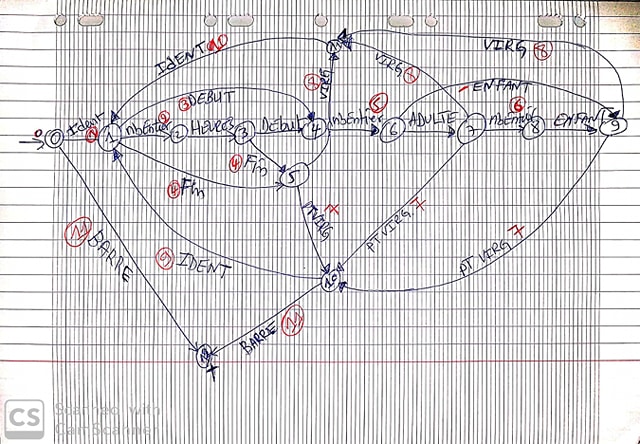 IDENT 10
VIRG 8
VIRG 8
VIRG 8
ENFANT
3 DEBUT
0 Ident 1 nbEntier 2 HEURES 3 Debut 4 nbEntier 5 6 ADULTE 7 nbEntier 6 8 ENFANT 9
4 Fin
4 Fin 5
PTVIRG 7
PTVIRG 7
PT VIRG 7
11 BARRE
9 IDENT
10
BARRE 11
CS Scanned with
CamScanner